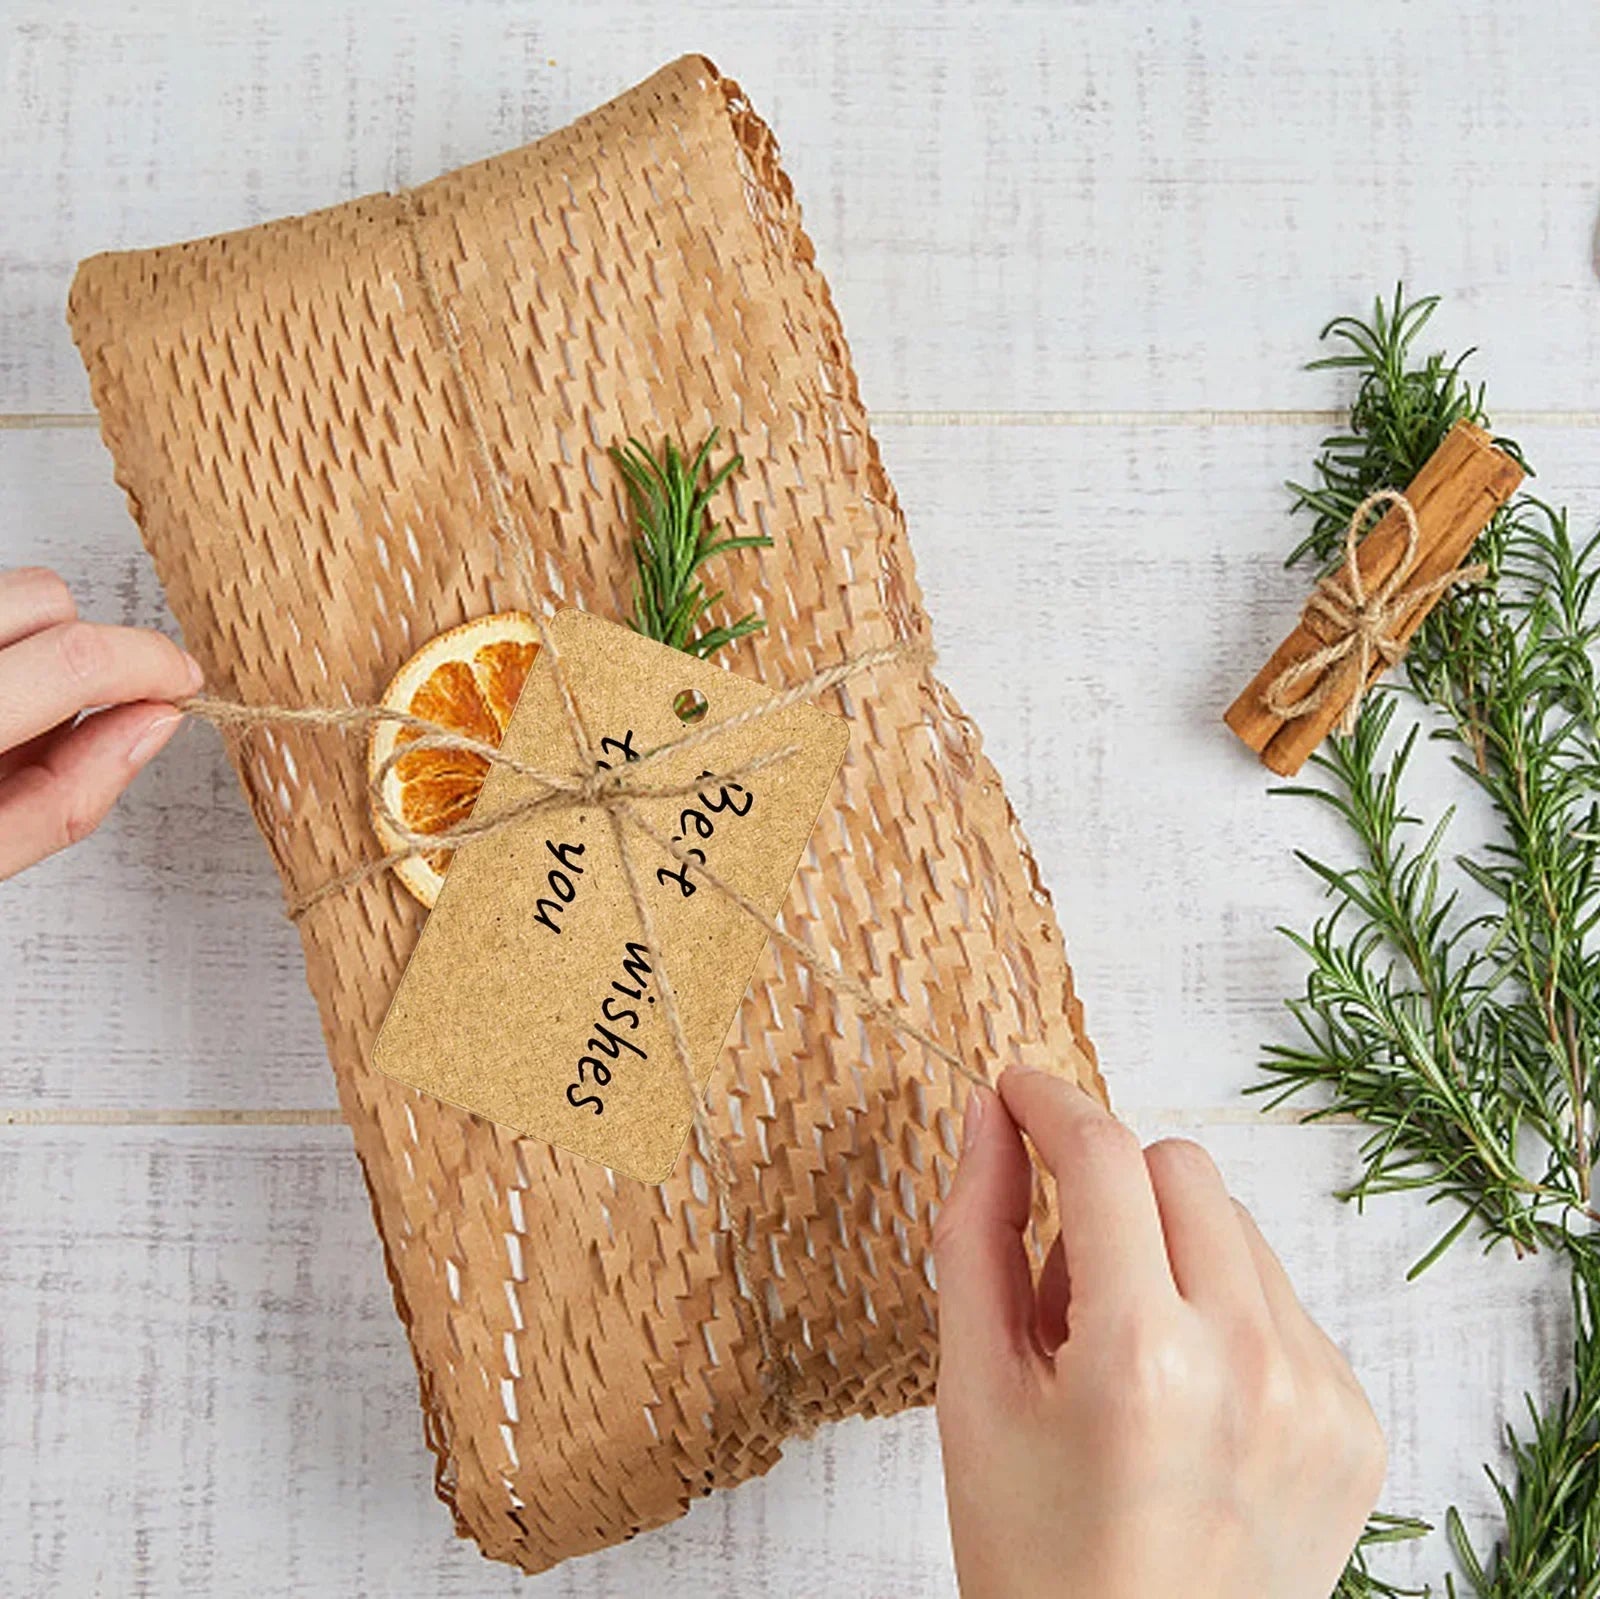 Best wishes
to you